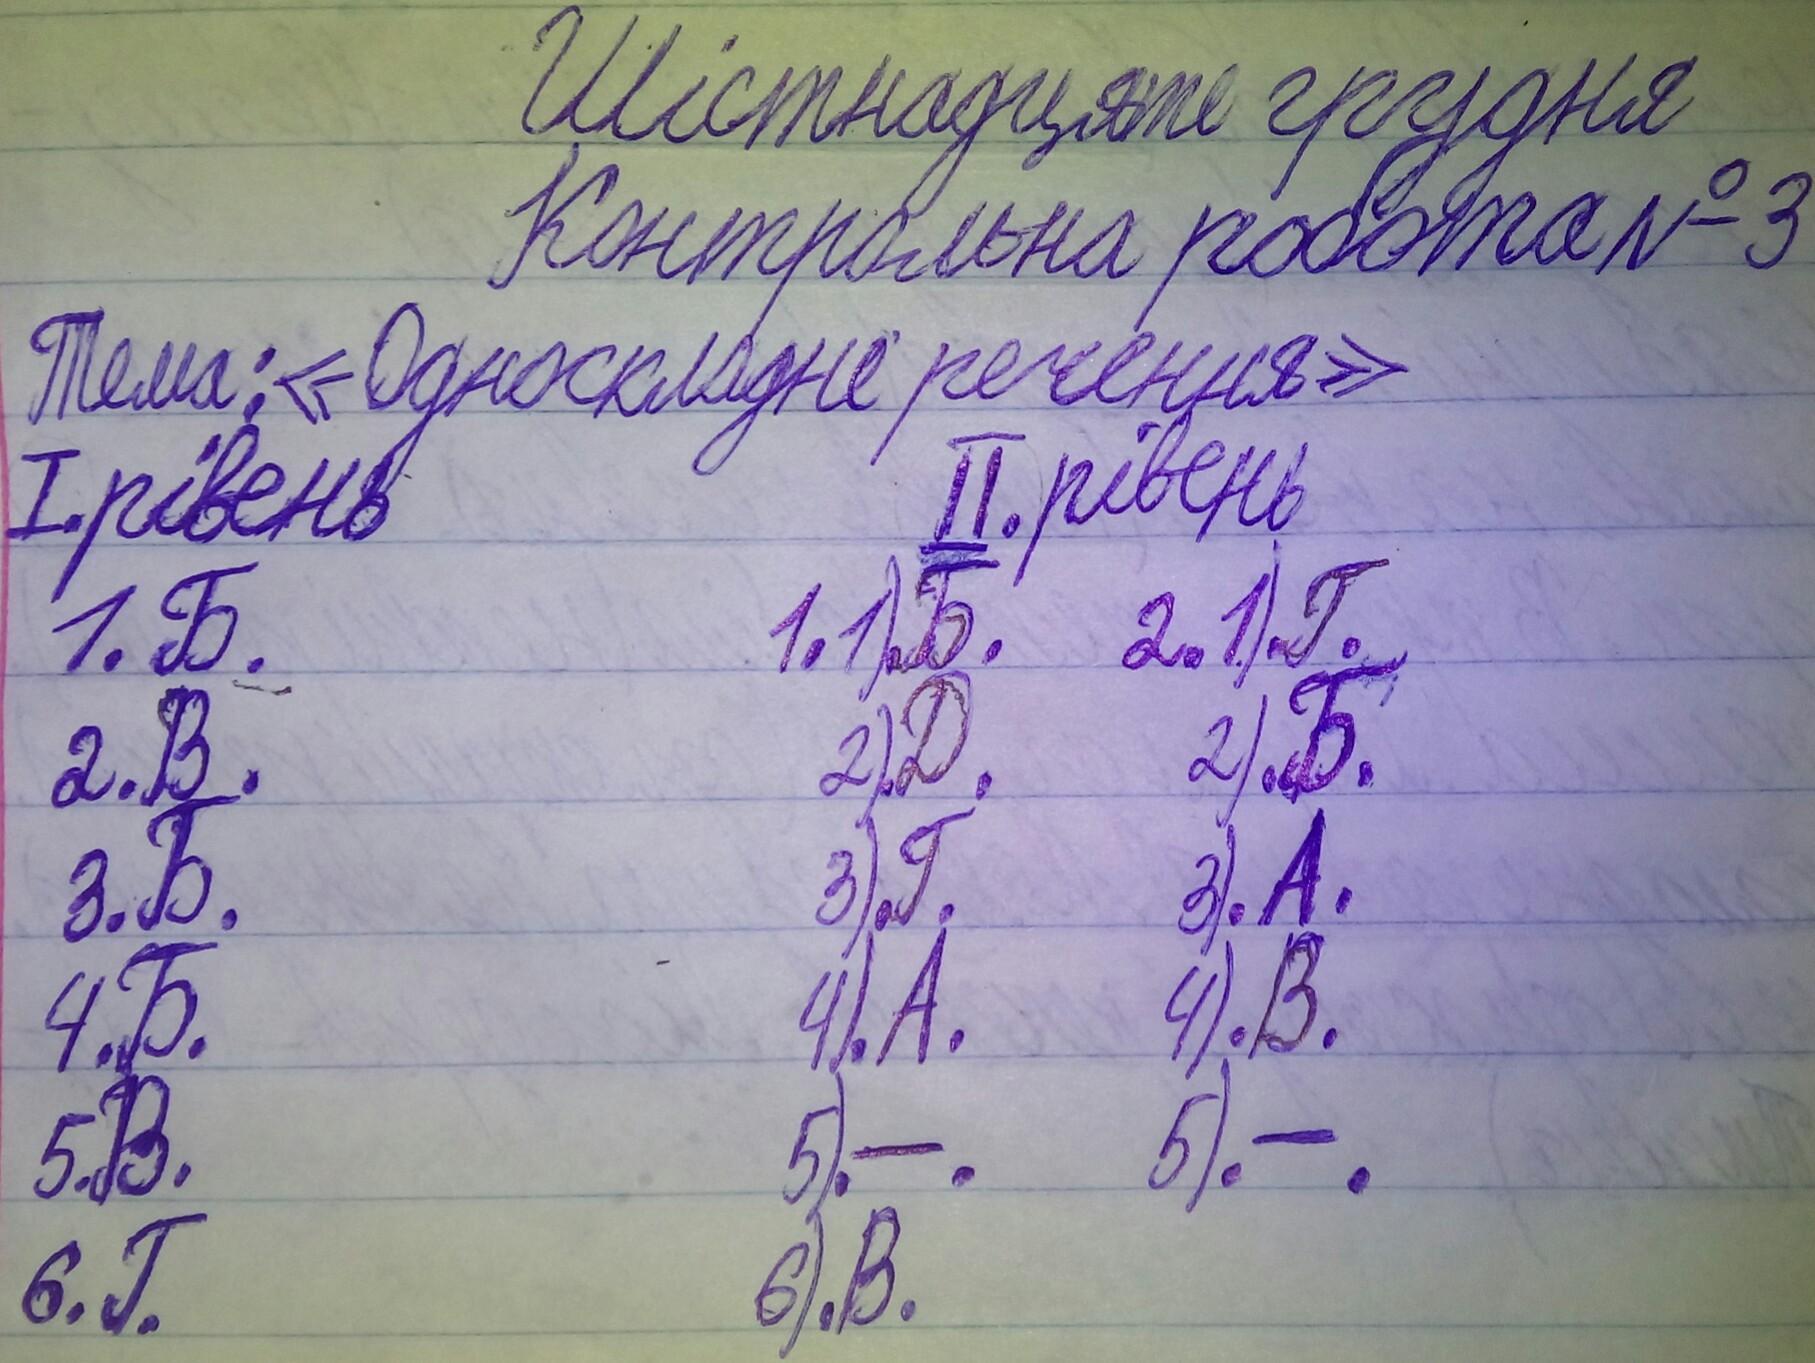 Шістнадцяте грудня
Контрольна робота №3
Тема: «Односкладне речення»
I. рівень
II. рівень
1. Б.
1. 1). Б.
2. 1). Г.
2. В.
2). Д.
2). Б.
3. Б.
3). Г.
3). А.
4. Б.
4). А.
4). В.
5. В.
5). —.
5). —.
6. Г.
6). В.